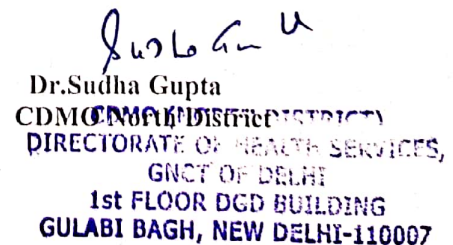 Dr.Sudha Gupta
CDMO North District
CDMO (NORTH DISTRICT)
DIRECTORATE OF HEALTH SERVICES,
GNCT OF DELHI
1st FLOOR DGD BUILDING
GULABI BAGH, NEW DELHI-110007